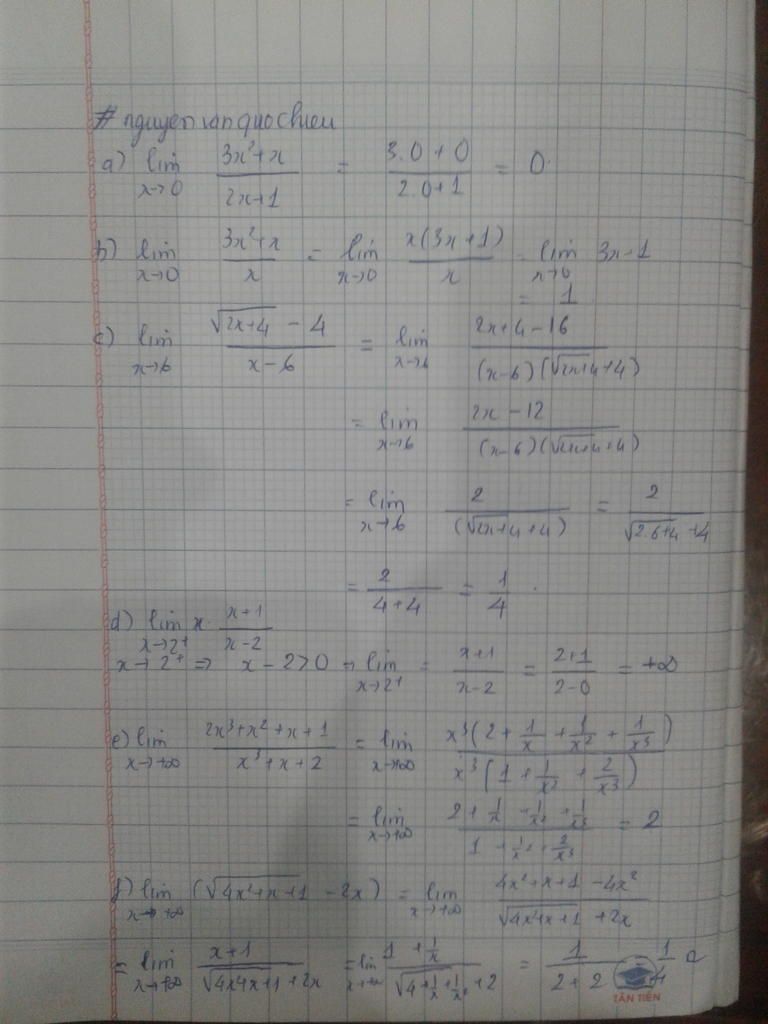 # nguyen van quochieu
a) lim x→0 (3x²+x)/(2x+1) = (3.0+0)/(2.0+1) = 0.
b) lim x→0 (3x²+x)/x = lim x→0 x(3x+1)/x = lim x→0 3x-1
= 1
c) lim x→6 (√(2x+4) - 4)/(x-6) = lim x→6 (2x+4-16)/((x-6)(√(2x+4)+4))
= lim x→6 (2x-12)/((x-6)(√(2x+4)+4))
= lim x→6 2/(√(2x+4)+4) = 2/(√(2.6+4)+4)
= 2/(4+4) = 1/4.
d) lim x→2⁺ x. (x+1)/(x-2)
x→2⁺ ⇒ x-2>0 → lim x→2⁺ = (x+1)/(x-2) = (2+1)/(2-0) = +∞
e) lim x→+∞ (2x³+x²+x+1)/(x³+x+2) = lim x→+∞ x³(2+1/x+1/x²+1/x³)/x³(1+1/x²+2/x³)
= lim x→+∞ (2+1/x+1/x²+1/x³)/(1+1/x²+2/x³) = 2
f) lim x→+∞ (√(4x²+x+1) - 2x) = lim x→+∞ (4x²+x+1-4x²)/(√(4x4x+1)+2x)
= lim x→+∞ (x+1)/(√(4x4x+1)+2x) = lim x→+∞ (1+1/x)/(√(4+1/x+1/x²)+2) = 1/(2+2) = 1/4
TÂN TIẾN